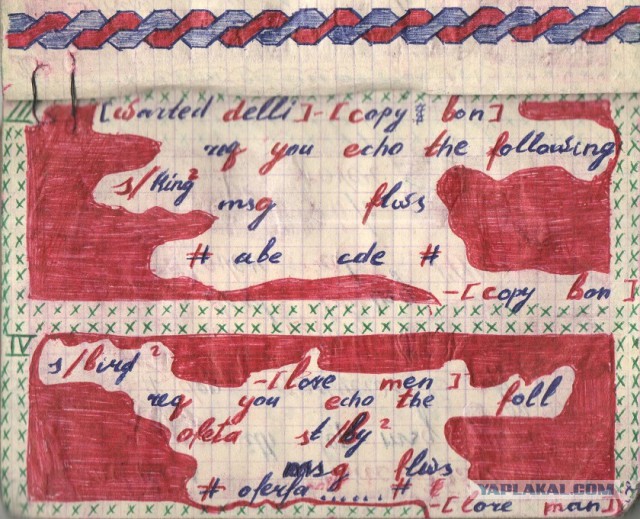 III [Warted delli]-[copy bon]
req you echo the following
s/King²
msg flws
# abc cde #
-[copy bon]
IV s/bird²
-[lore men]
req you echo the foll
ofeta st/by²
msg flws
# oferfa ...... #
YAPLAKAL.COM
-[lore man]